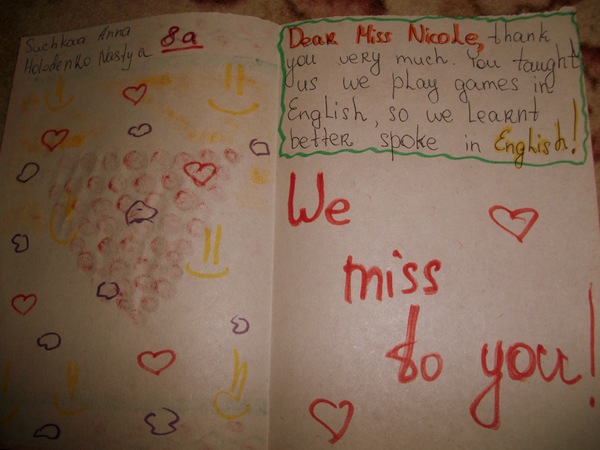 Suchkova Anna 8a
Holodenko Nastya
Dear Miss Nicole, thank
you very much. You taught
us we play games in
English, so we learnt
better spoke in English!
We
miss
to you!